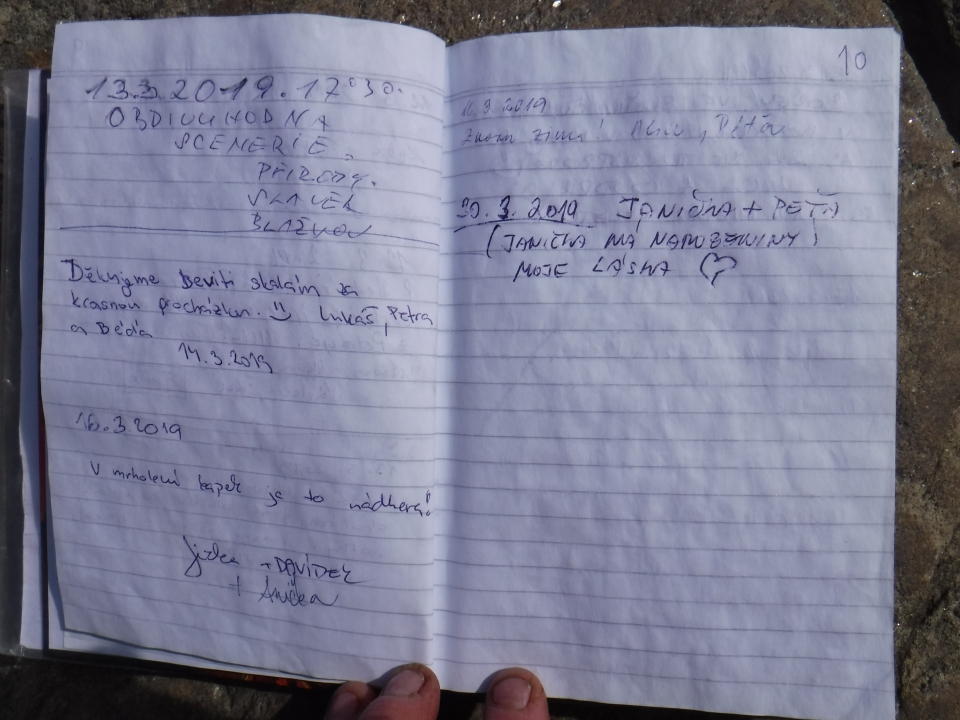 13.3.2019. 17°30.
OBDIVUHODNÁ
SCENERIE
PŘÍRODY.
SLÁVEK
Děkujeme Devíti skalám za
krásnou procházku. :) Lukáš, Petra
a Béďa
14.3.2019
16.3.2019
V mrholení kapek je to nádhera!
Jirka + DAVÍDEK
+ Anička
10
2019
zima!
30.3.2019 JANIČKA + PÉŤA
(JANIČKA MÁ NAROZENINY)
MOJE LÁSKA ♡